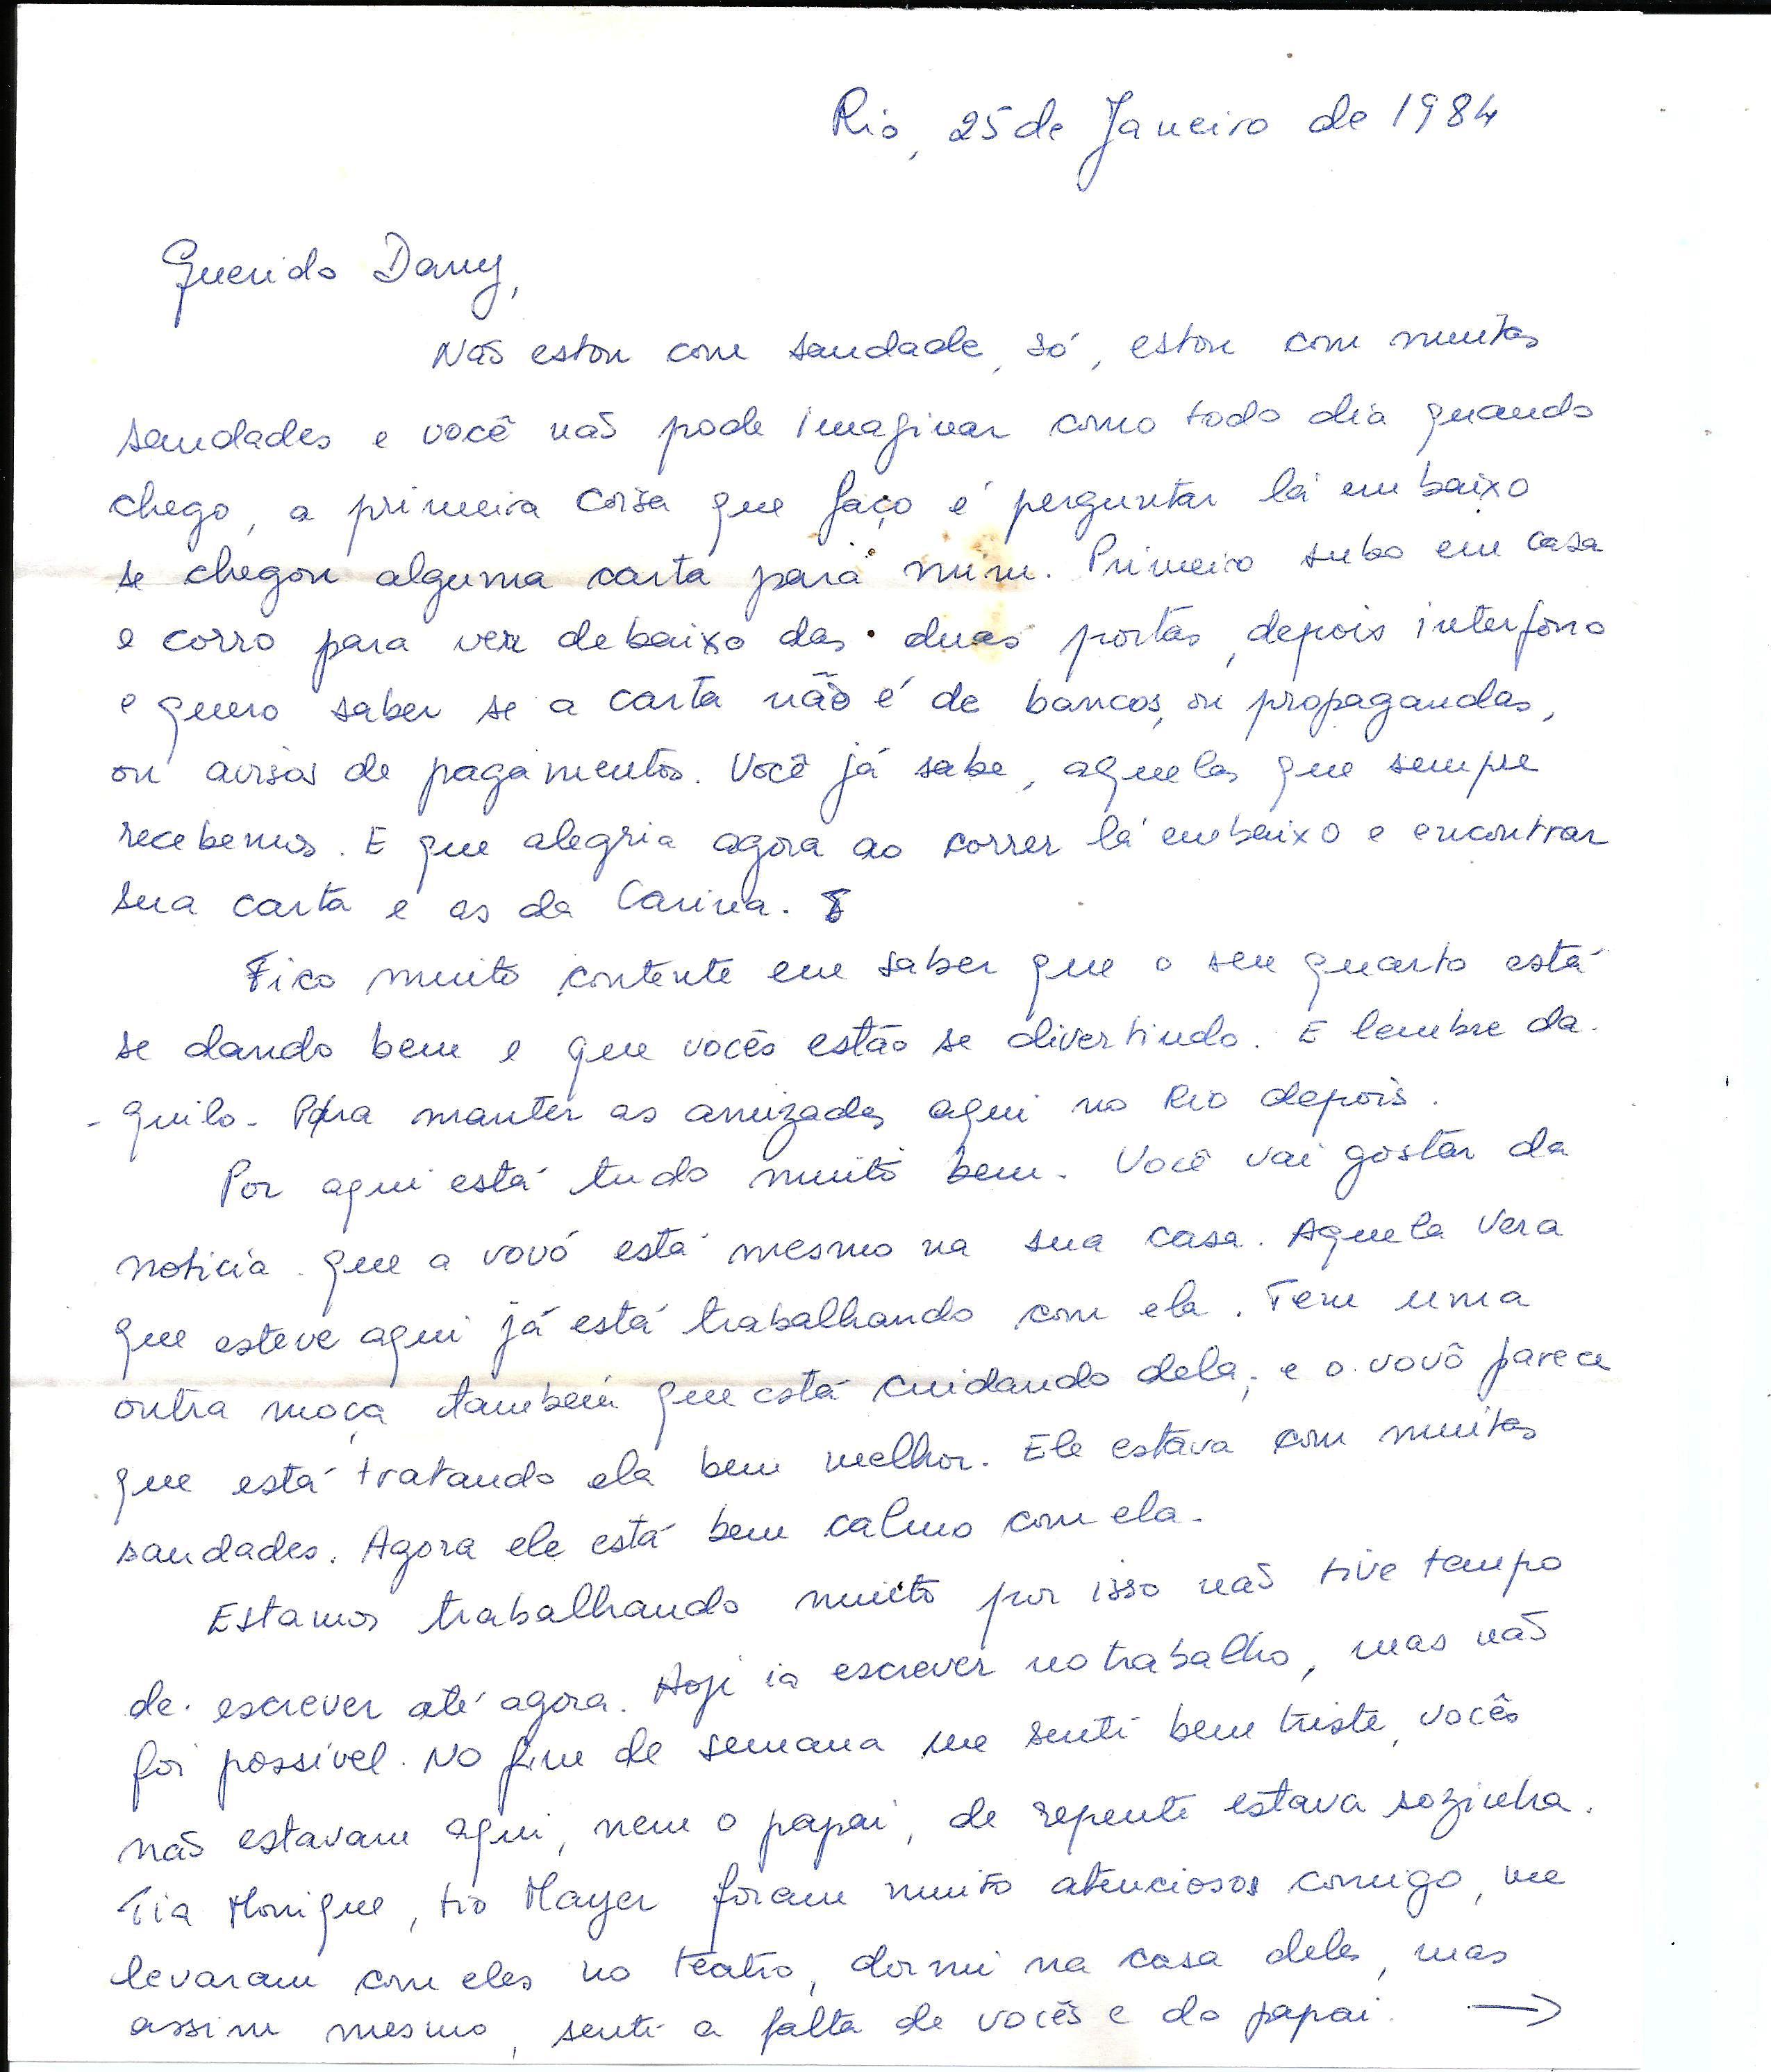 Rio, 25 de Janeiro de 1984
Querido Dany,
Não estou com saudade, só, estou com muitas
saudades e você não pode imaginar como todo dia quando
chego, a primeira coisa que faço é perguntar lá embaixo
se chegou alguma carta para mim. Primeiro subo em casa
e corro para ver debaixo das duas portas, depois interfono
e quero saber se a carta não é de bancos, ou propagandas,
ou avisos de pagamentos. Você já sabe, aquelas que sempre
recebemos. E que alegria agora ao correr lá embaixo e encontrar
sua carta e as da Carina.
Fico muito contente em saber que o seu quarto está
se dando bem e que vocês estão se divertindo. E lembre da-
- quilo - Para manter as amizades aqui no Rio depois.
Por aqui está tudo muito bem. Você vai gostar da
noticia que a vovó está mesmo na sua casa. Aquela Vera
que esteve aqui já está trabalhando com ela. Tem uma
outra moça também que está cuidando dela, e o vovô parece
que está tratando ela bem melhor. Ele estava com muitas
saudades. Agora ele está bem calmo com ela.
Estamos trabalhando muito por isso não tive tempo
de escrever até agora. Hoje ia escrever no trabalho, mas não
foi possível. No fim de semana me senti bem triste, vocês
não estavam aqui, nem o papai, de repente estava sozinha.
Tia Monique, tio Mayer foram muito atenciosos comigo, me
levaram com eles no teatro, dormi na casa deles, mas
assim mesmo, senti a falta de vocês e do papai. →